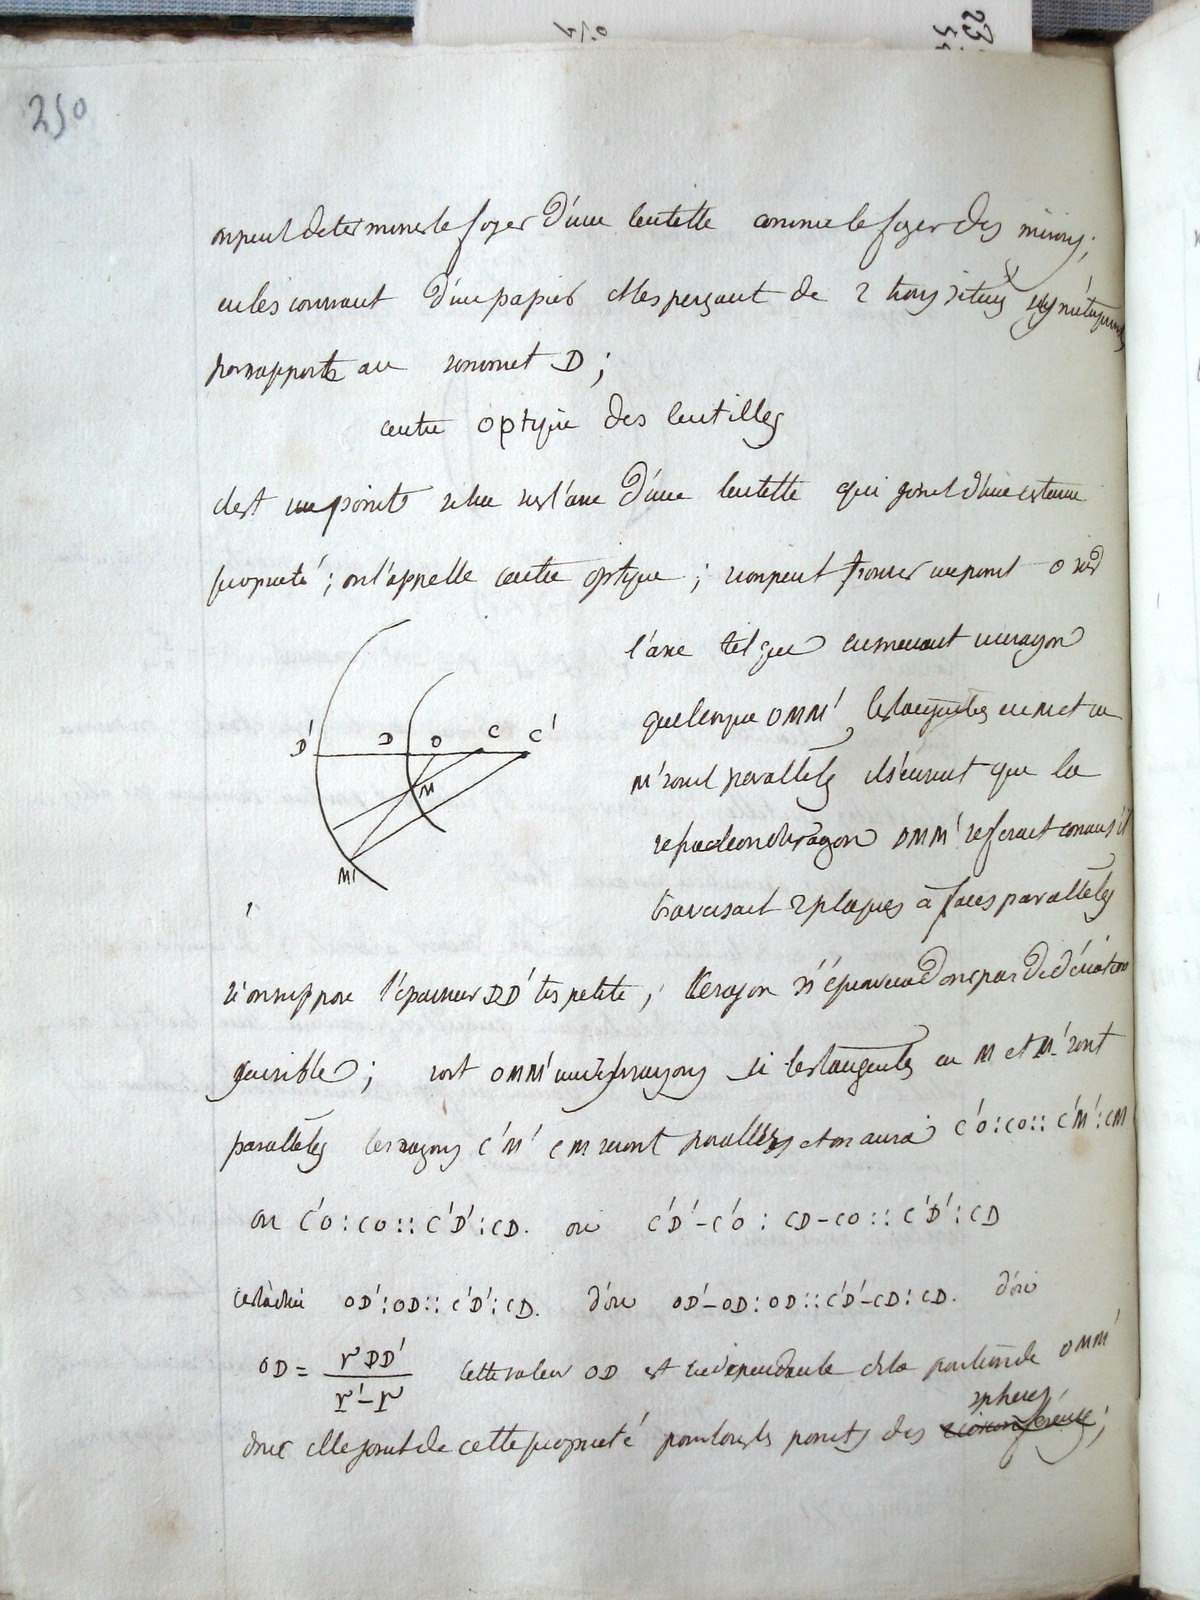 250
on peut determiner le foyer d'une lentille comme le foyer des miroirs;
en les couvrant d'un papier et les perçant de 2 trous situés symétriques
par rapport au sommet D;
centre optique des lentilles
c'est un point situé sur l'axe d'une lentille qui jouit d'une certaine
propriété; on l'appelle centre optique; si on peut trouver un point O sur
l'axe tel que en menant un rayon
quelconque OMM', les tangentes en M et en
M' sont paralleles il s'ensuit que la
refraction du rayon OMM' se ferait comme s'il
traversait 2 plaques à faces paralleles
D' D O C C'
M
M'
si on suppose l'épaisseur DD' très petite; le rayon n'éprouvera donc pas de déviation
sensible; soit OMM' un des rayons si les tangentes en M et M' sont
paralleles les rayons C'M' CM seront paralleles et on aura C'O:CO::C'M':CM
ou C'O:CO::C'D':CD. ou C'D'-C'O:CD-CO::C'D':CD
c'est à dire OD':OD::C'D':CD. d'où OD'-OD:OD::C'D'-CD:CD. d'où
OD = r DD' / r'-r cette valeur OD est independante de la position de OMM'
spheres
donc elle jouit de cette propriété pour tous les points des circonference;